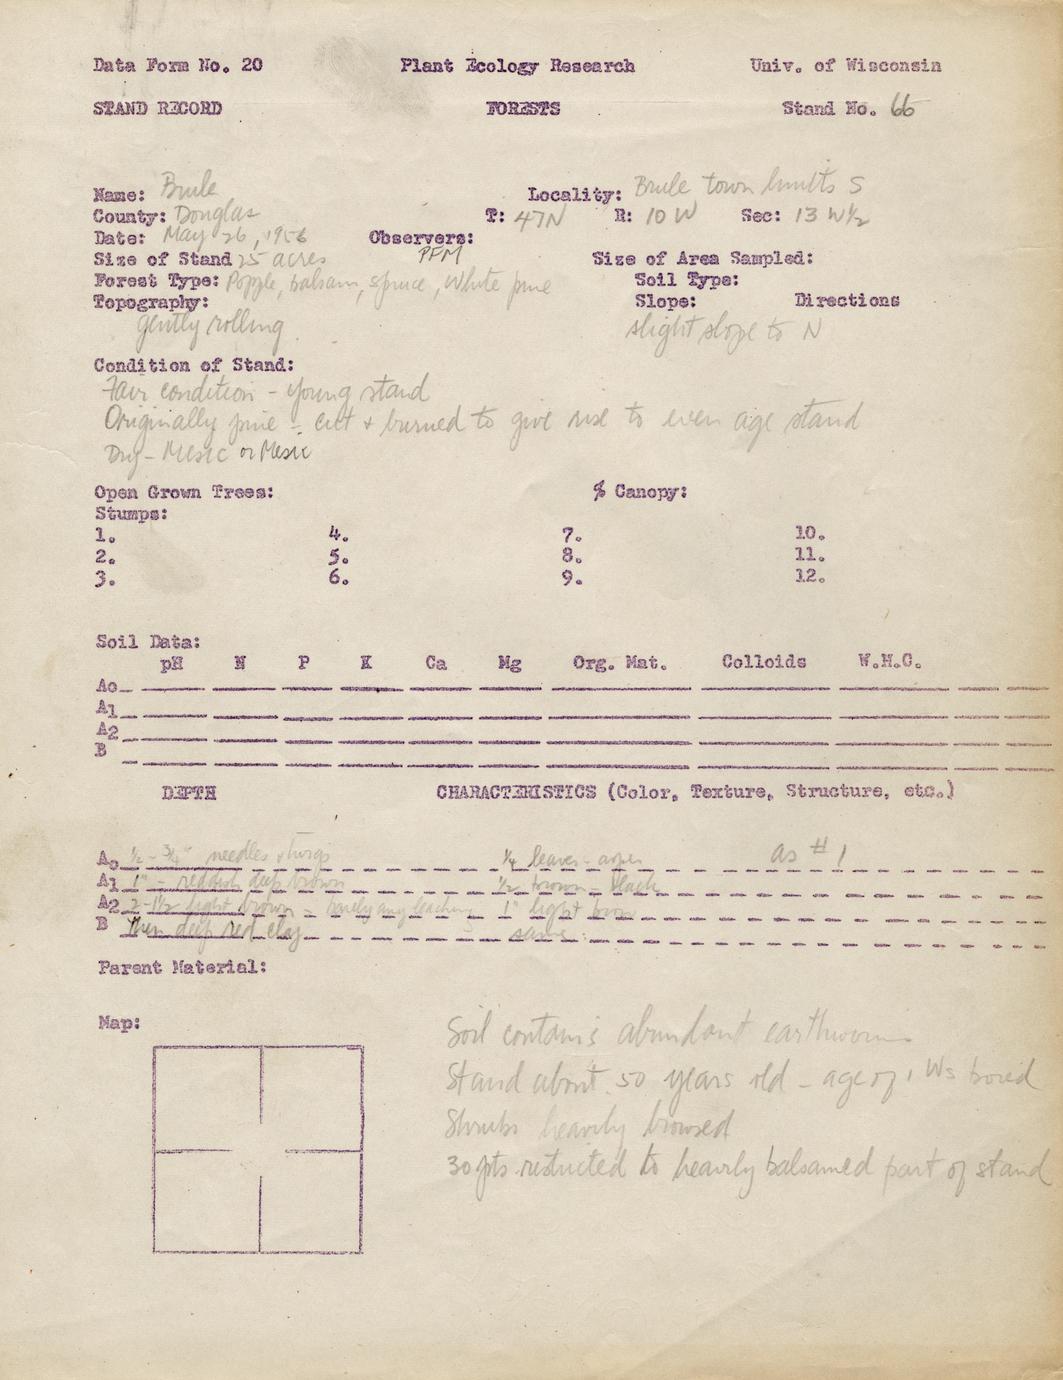 Data Form No. 20 Plant Ecology Research Univ. of Wisconsin
STAND RECORD FORESTS Stand No. 66
Name: Brule Locality: Brule town limits S
County: Douglas T: 47N R: 10 W Sec: 13 W½
Date: May 26, 1956 Observers: PFM
Size of Stand 25 acres Size of Area Sampled:
Forest Type: Popple, balsam, spruce, White pine Soil Type:
Topography: Slope: Directions
gently rolling slight slope to N
Condition of Stand:
Fair condition - young stand
Originally pine - cut + burned to give rise to even age stand
Dry-Mesic or Mesic
Open Grown Trees: % Canopy:
Stumps:
1. 4. 7. 10.
2. 5. 8. 11.
3. 6. 9. 12.
Soil Data:
pH N P K Ca Mg Org. Mat. Colloids W.H.C.
Ao
A1
A2
B
DEPTH CHARACTERISTICS (Color, Texture, Structure, etc.)
Ao ½ - ¾" needles + twigs ¼ leaves - aspen as #1
A1 1" - reddish deep brown ½ brown - black
A2 2-1½ light brown - rarely any leaching 1" light brown
B Then deep red clay same
Parent Material:
Map:
Soil contains abundant earthworms
Stand about 50 years old - age of 1 Ws bored
Shrubs heavily browsed
30 pts restricted to heavily balsamed part of stand